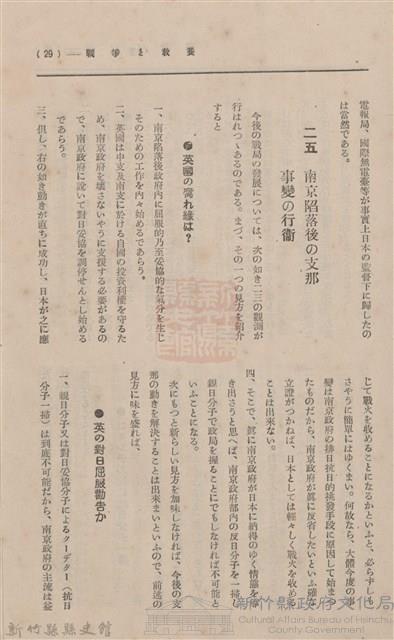 (29)——戰爭と教養
電報局、國際無電臺等が事實上日本の監督下に歸したの
は當然である。
二五 南京陷落後の支那
事變の行衞
今後の戰局の發展については、次の如き二三の觀測が
行はれつゝあるのである。まづ、その一つの見方を紹介
すると
● 英國の窺れ線は?
一、南京陷落後政府内に屈服的乃至妥協的な氣分を生じ
そのための工作を内々始めるであらう。
二、英國は中支及南支に於ける自國の投資利權を守るた
め、南京政府を壞さないやうに支援する必要があるの
で、南京政府に說いて對日妥協を調停せんとし始める
であらう。
三、但し、右の如き動きが直ちに成功し、日本が之に應
じて戰火を收めることになるかといふと、必らずしも
さやうに簡單にはゆくまい。何故なら、大體今度の事
變は南京政府の排日抗日的挑發手段に原因して始まつ
たものだから、南京政府が眞に反省したいといふ確た
立證がつかねば、日本としては輕々しく戰火を收める
ことは出來ない。
四、そこで、眞に南京政府が日本に納得のゆく情勢を導
き出さうと思へば、南京政府部内の反日分子を一掃し
親日分子で政局を握ることにでもしなければ不可能と
いふことになる。
次にもつと新らしい見方を加味しなければ、今後の支
那の動きを解決することは出來まいといふので、前述の
見方に味を盛れば、
● 英の對日屈服勸告か
一、親日分子又は對日妥協分子によるクーデター(抗日
分子一掃)は到底不可能だから、南京政府の主流は益
新竹縣縣史館
新竹縣政府文化局
Cultural Affairs Bureau of Hsinchu
County Government